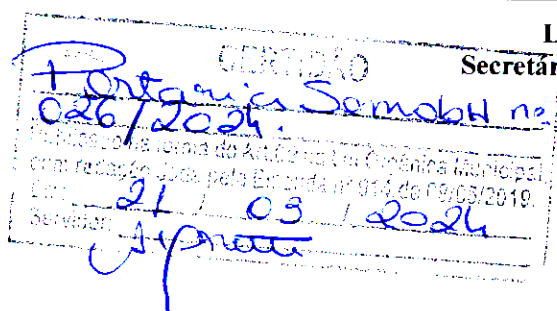 L
Secretár
CERTIDÃO
Portaria Semobh no
026/2024.
Orgânica Municipal,
com redação dada pela Emenda nº 014 de 09/05/2019.
Em: 21 / 03 / 2024
Servidor: